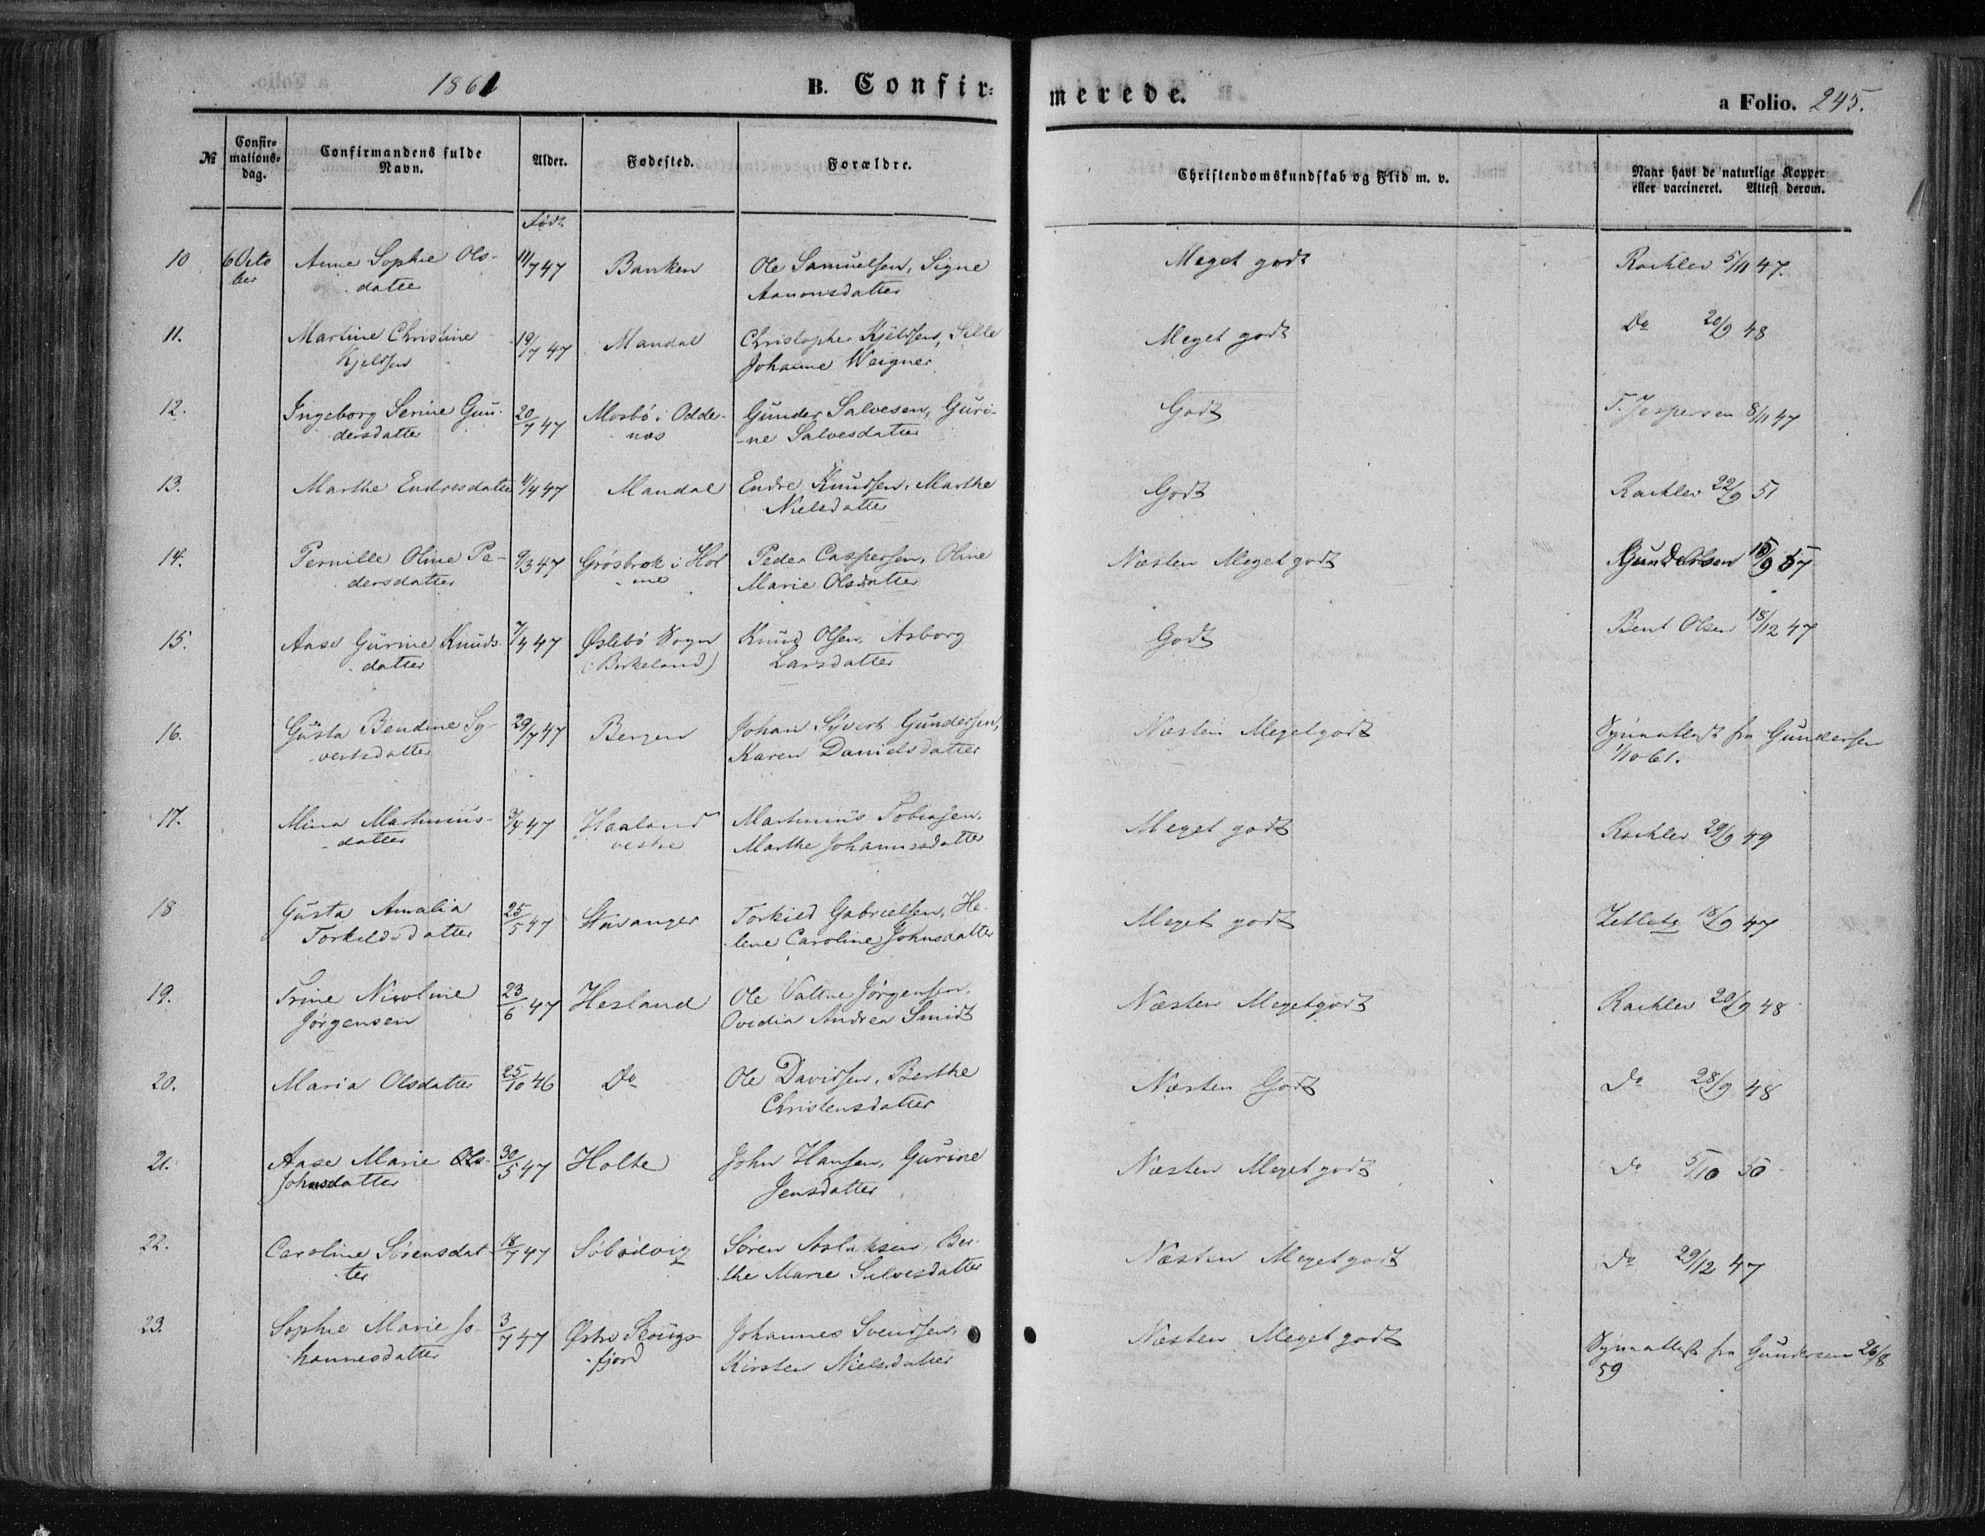 1861
B. Confirmerede.
a Folio. 245.
№
Confir=
mations=
dag.
Confirmandens fulde
Navn.
Alder.
Fødested.
Forældre.
Christendomskundskab og Flid m. v.
Naar havt de naturlige Kopper
eller vaccineret. Attest derom.
Født
10 6 Octo Anne Sophie Ols- 11/7 47 Banken Ole Samuelsen, Signe Meget godt Rachlev 5/11 47.
ber datter Aanonsdatter
11. Martine Christine 19/7 47 Mandal Christopher Kjeldsen, Sille Meget godt Do 20/9 48
Kjeldsen Johanne Weigner
12. Ingeborg Serine Gun- 20/7 47 Mosbö i Odde- Gunder Salvesen, Guri- Godt T. Jespersen 8/11 47
dersdatter næs -ne Salvesdatter
13. Marthe Endresdatter 11/4 47 Mandal Endre Knudsen, Marthe Godt Rachlev 22/9 51
Nielsdatter
14. Pernille Oline Pe- 9/3 47 Grösbrok i Hol Peder Caspersen, Oline Næsten Meget godt Gundersen 18/9 57
dersdatter -me Marie Olsdatter
15. Aase Gurine Knuds- 7/4 47 Øslebö Sogn Knud Olsen, Asborg Godt Bent Olsen 18/12 47
datter (Birkeland) Larsdatter
16. Gusta Bendine Sy- 29/7 47 Bergen Johan Sÿvert Gundersen, Næsten Meget godt Synsattest fra Gundersen
vertsdatter Karen Danielsdatter 1/10 61.
17. Mina Martinius- 3/4 47 Haaland Martinius Tobiasen, Meget godt Rachlev 29/9 49
datter vestre Marthe Johannesdatter
18 Gusta Amalia 25/5 47 Stavanger Torkild Gabrielsen, He- Meget godt Zetlitz 18/9 47
Torkildsdatter lene Caroline Johnsdatter
19. Trine Nicoline 23/6 47 Hesland Ole Vatne Jørgensen, Næsten Meget godt Rachlev 20/9 48
Jörgensen Ovidia Andrea Smidt
20. Maria Olsdatter 25/10 46 Do Ole Davidsen, Berthe Næsten Godt Do 28/9 48
Christensdatter
21. Aase Marie Ols- 30/5 47 Holte John Hansen, Gurine Næsten Meget godt Do 5/10 50
Johnsdatter Jensdatter
22. Caroline Sörensdat- 18/7 47 Söbödvig Sören Aslaksen, Ber- Næsten Meget godt Do 29/12 47
ter the Marie Salvesdatter
23. Sophie Marie Jo- 3/7 47 Østre Skougs- Johannes Svendsen, Næsten Meget godt Synsattest fra Gundersen 26/8
hannesdatter fjord Kirsten Nielsdatter 59